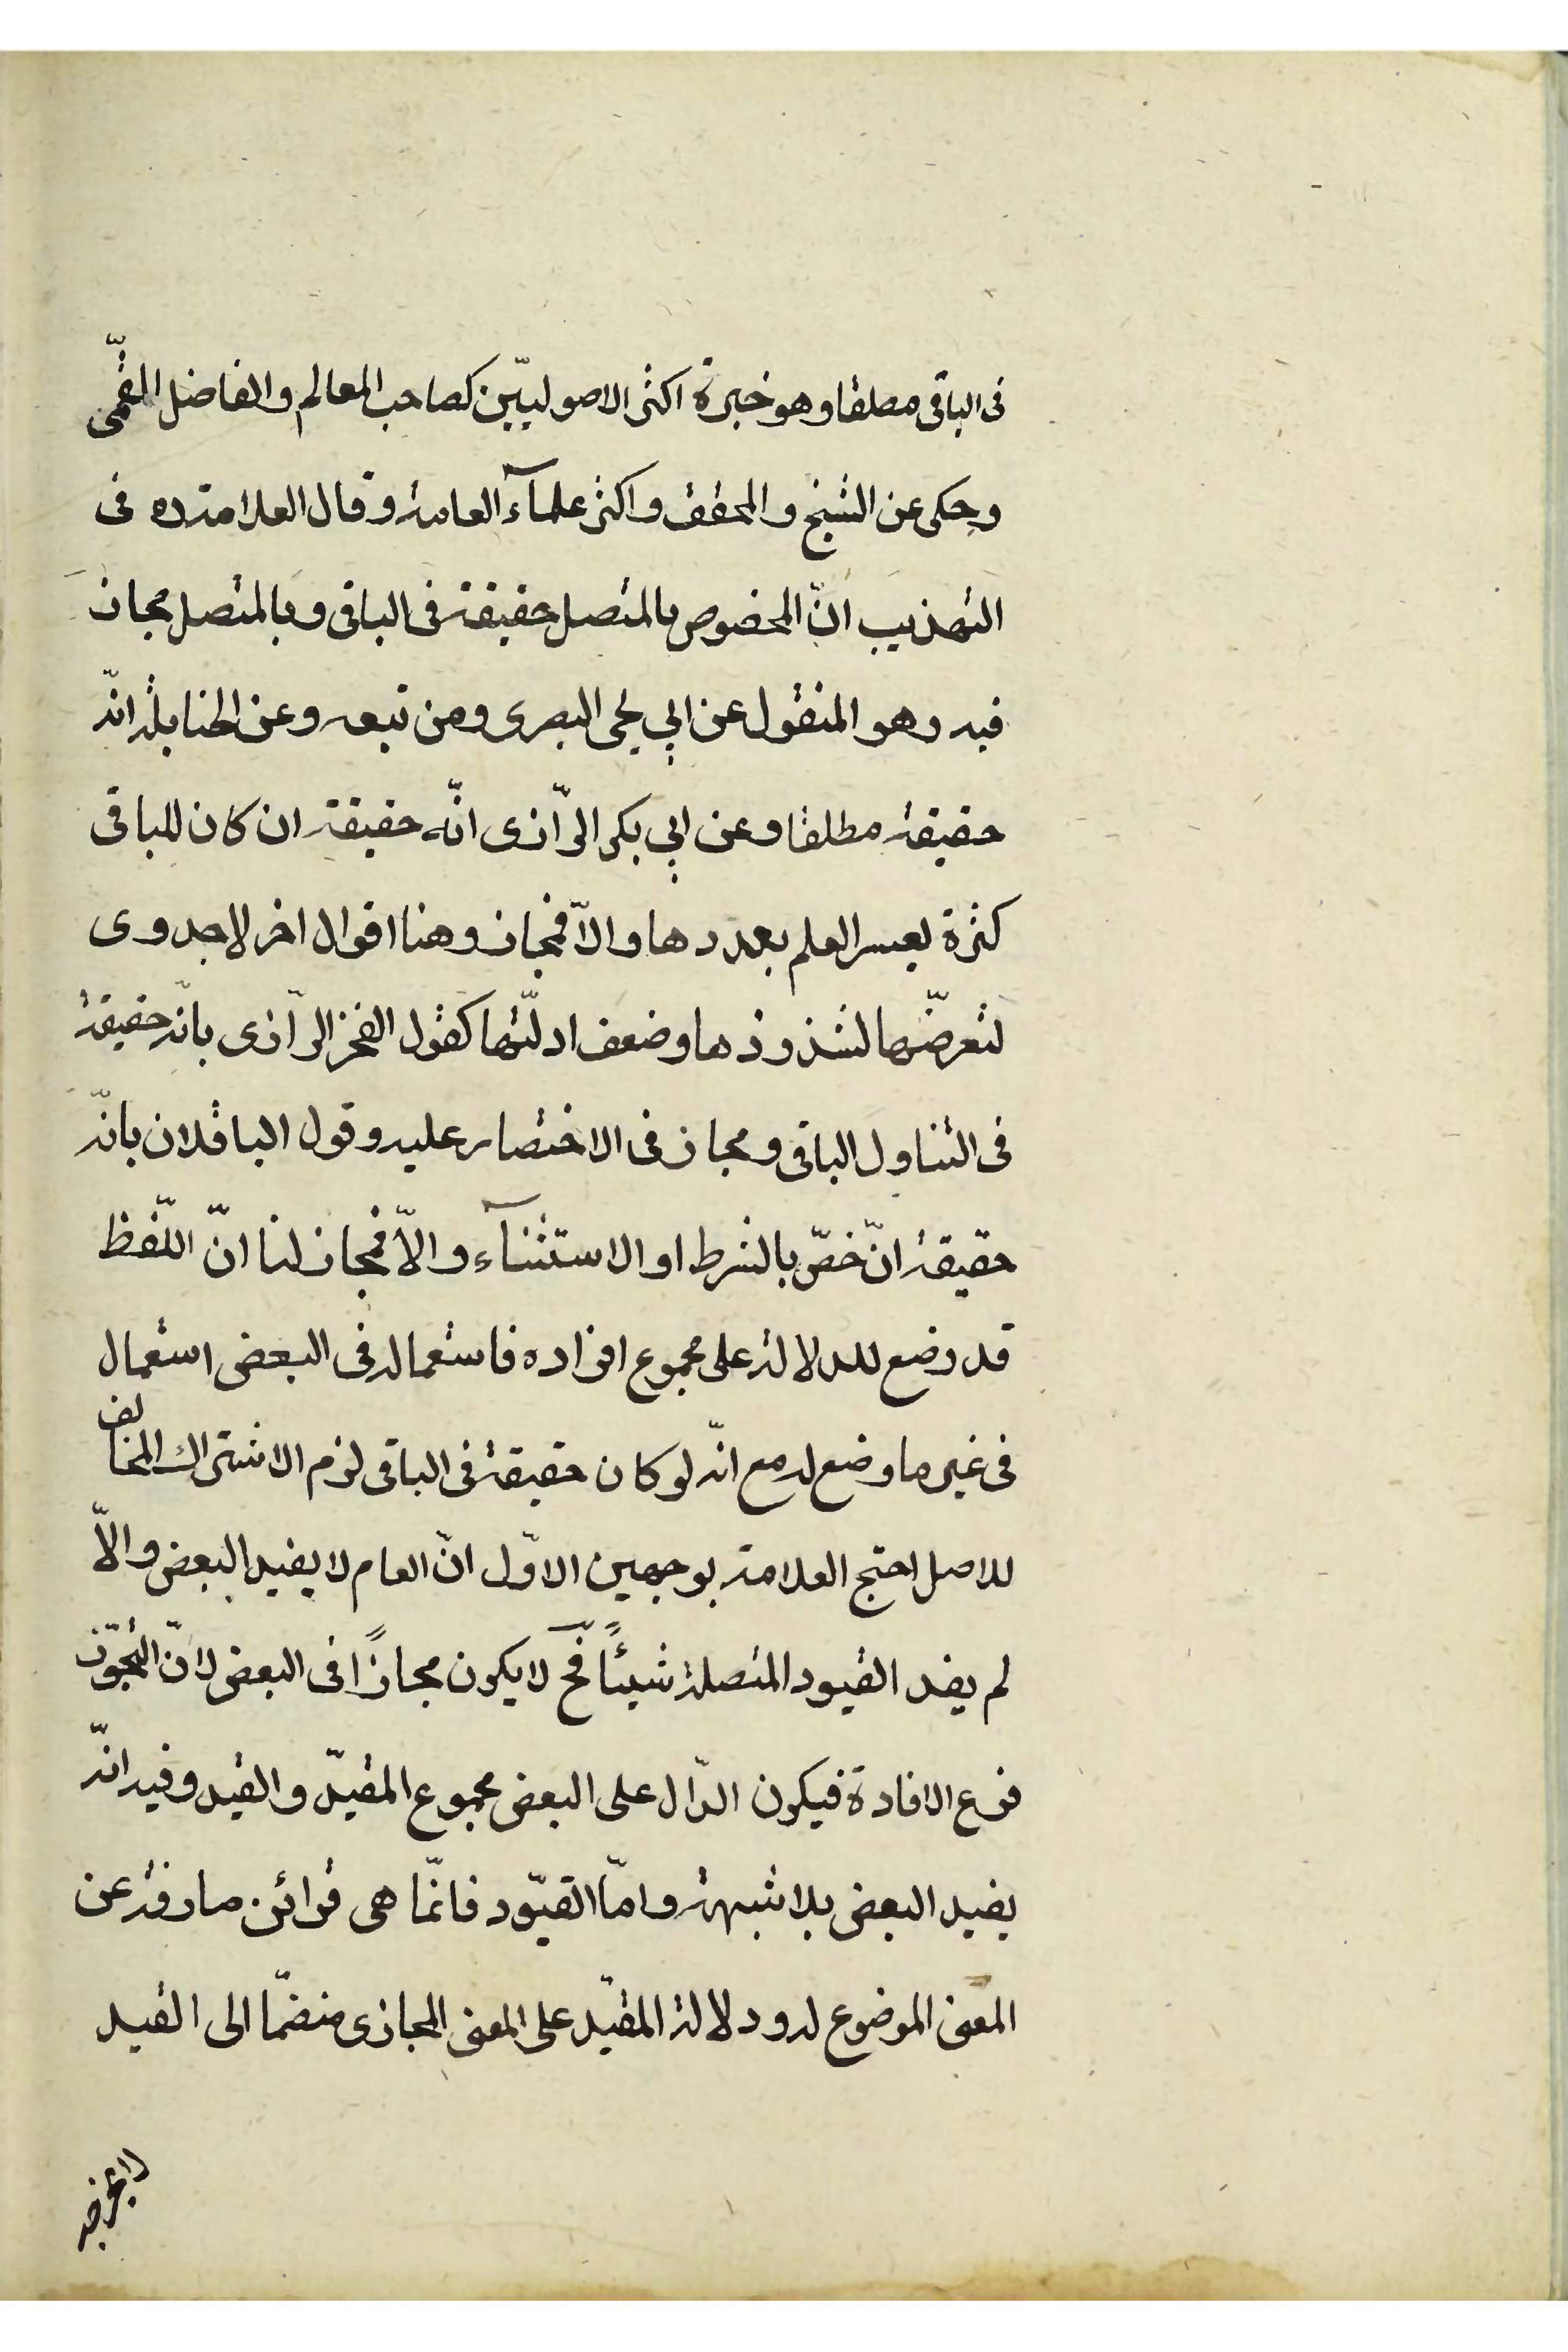 فى الباقى مطلقا وهو خيرة اكثر الاصوليّين كصاحب المعالم والفاضل القمّى
وحكى عن الشيخ والمحقق واكثر علمآء العامة وقال العلامة ره فى
التهذيب انّ المخصوص بالمتصل حقيقة فى الباقى وبالمنفصل مجاز
فيه وهو المنقول عن ابي يحى البصرى ومن تبعه وعن الحنابلة انّه
حقيقة مطلقا وعن ابي بكر الرّازى انّه حقيقة ان كان للباقى
كثرة يعسر العلم بعددها والاّ فمجاز وهنا اقوال اخر لا جدوى
لتعرضّها لشذوذها وضعف ادلّتها كقول الفخر الرّازى بانّه حقيقة
فى التناول الباقى ومجاز فى الاختصار عليه وقول الباقلان بانّه
حقيقة انّ خصّ بالشرط او الاستثنآء والاّ فمجاز لنا انّ اللّفظ
قد وضع للدلالة على مجموع افراده فاستعماله فى البعض استعمال
فى غير ما وضع له مع انّه لو كان حقيقة فى الباقى لزم الاشتراك المخالف
للاصل احتج العلامة بوجهين الاوّل انّ العام لا يفيد البعض والاّ
لم يفد القيود المتصلة شيئاً فح لا يكون مجازاً فى البعض لانّ التجوّز
فرع الافادة فيكون الدّال على البعض مجموع المقيّد والقيد وفيه انّه
يفيد البعض بلا شبهة وامّا القيّود فانّما هى قرائن صارفة عن
المعنى الموضوع له ودلالة المقيّد على المعنى المجازى منضمّا الى القيد